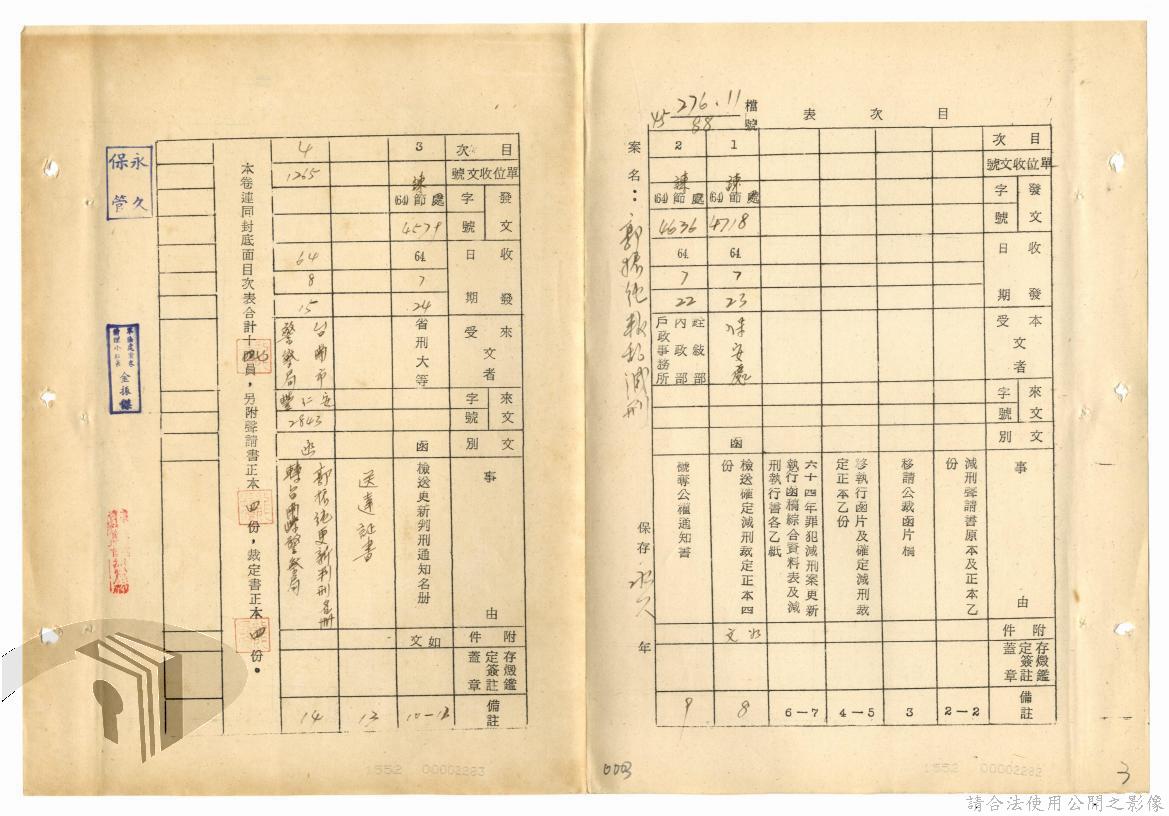 目次表
檔號 276.11
45 88
案名：
保存永久年
目次
單位收文號
發文
字號
收發
日期
本文
受者
來文
字號
文別
事由
附件
存燬鑑定簽註蓋章
備註
減刑聲請書原本及正本乙份
2—2
移請公裁函片稿
3
移執行函片及確定減刑裁定正本乙份
4—5
六十四年罪犯減刑案更新執行函稿綜合資料表及減刑執行書各乙紙
6—7
1
諫
(64)節處
4718
64
7
23
保安處
函
檢送確定減刑裁定正本四份
如文
8
2
諫
(64)節處
4636
64
7
22
內政部
戶政事務所
褫奪公權通知書
9
003
3
1552 00002282
目次
單位收文號
發文
字號
收發
日期
來文
受者
來文
字號
文別
事由
附件
存燬鑑定簽註蓋章
備註
3
諫
(64)節處
4579
64
7
24
省刑大等
函
檢送更新判刑通知名册
如文
10—12
送達証書
13
4
1265
64
8
15
台南市警察局
2843
函
14
本卷連同封底面目次表合計十四頁，另附聲請書正本四份，裁定書正本四份。
永久保管
金振
1552 00002283
請合法使用公開之影像